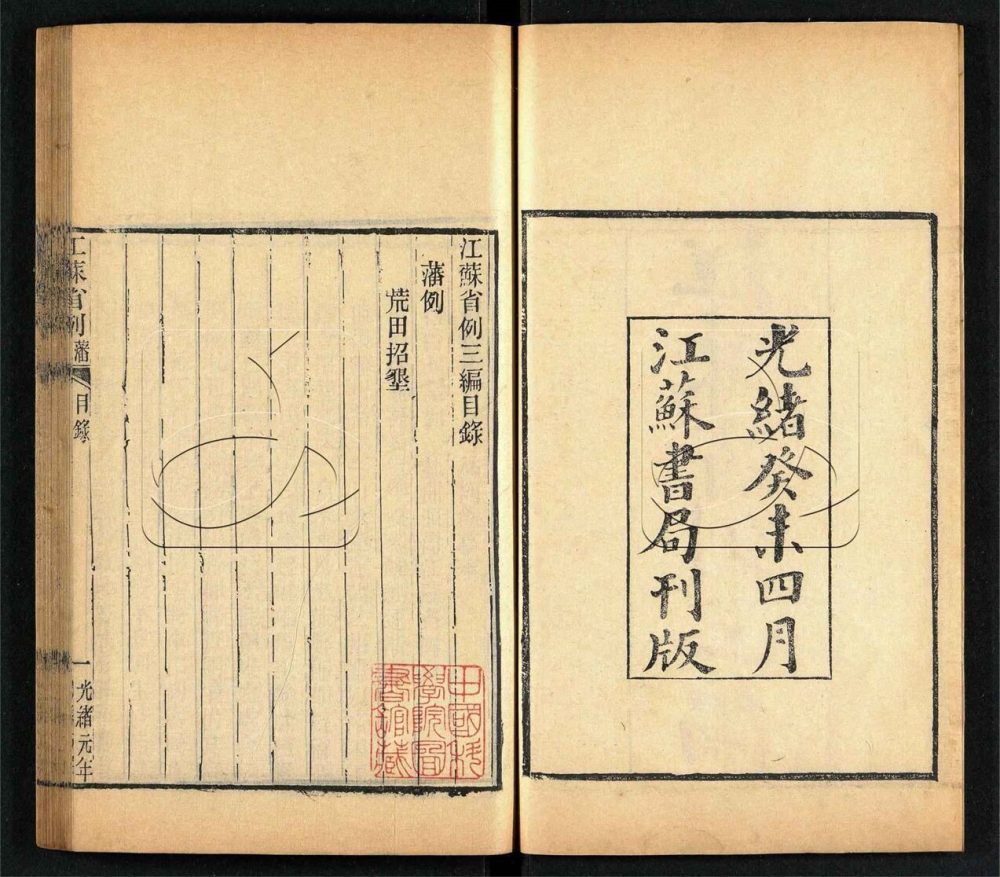 光緒癸未四月
江蘇書局刊版
江蘇省例三編目錄
藩例
荒田招墾
中國科
學院圖
書館藏
江蘇省例藩 目錄
一 光緒元年